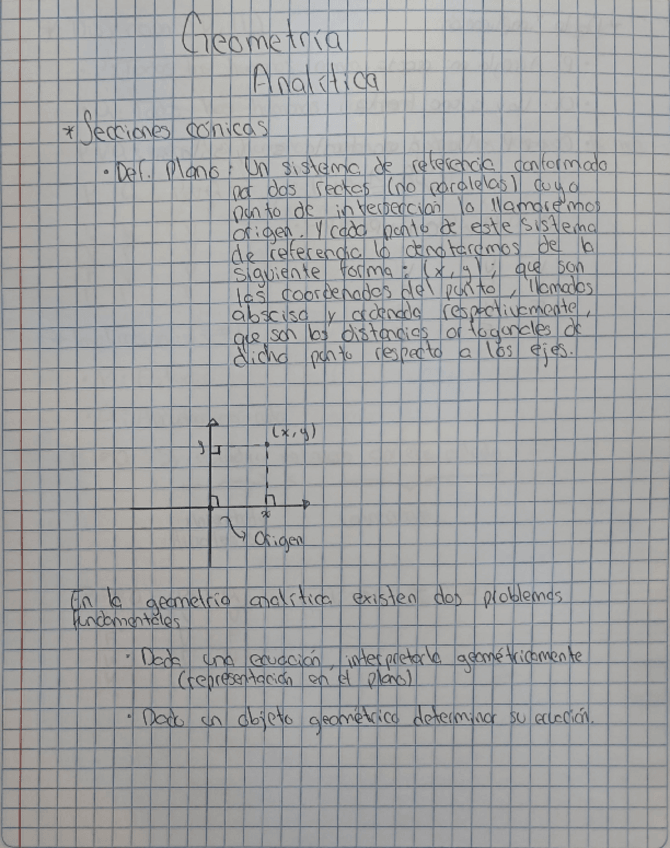 Geometría
Analítica
* Secciones cónicas
· Def. Plano: Un sistema de referencia conformado
por dos rectas (no paralelas) cuyo
punto de intersección lo llamaremos
origen. Y cada punto de este sistema
de referencia lo denotaremos de la
siguiente forma: (x, y); que son
las coordenadas del punto, llamadas
abscisa y ordenada respectivamente,
que son las distancias ortogonales de
dicho punto respecto a los ejes.
(x, y)
y
x
Origen
En la geometría analítica existen dos problemas
fundamentales
· Dada una ecuación, interpretarla geométricamente
(representación en el plano)
· Dado un objeto geométrico determinar su ecuación.